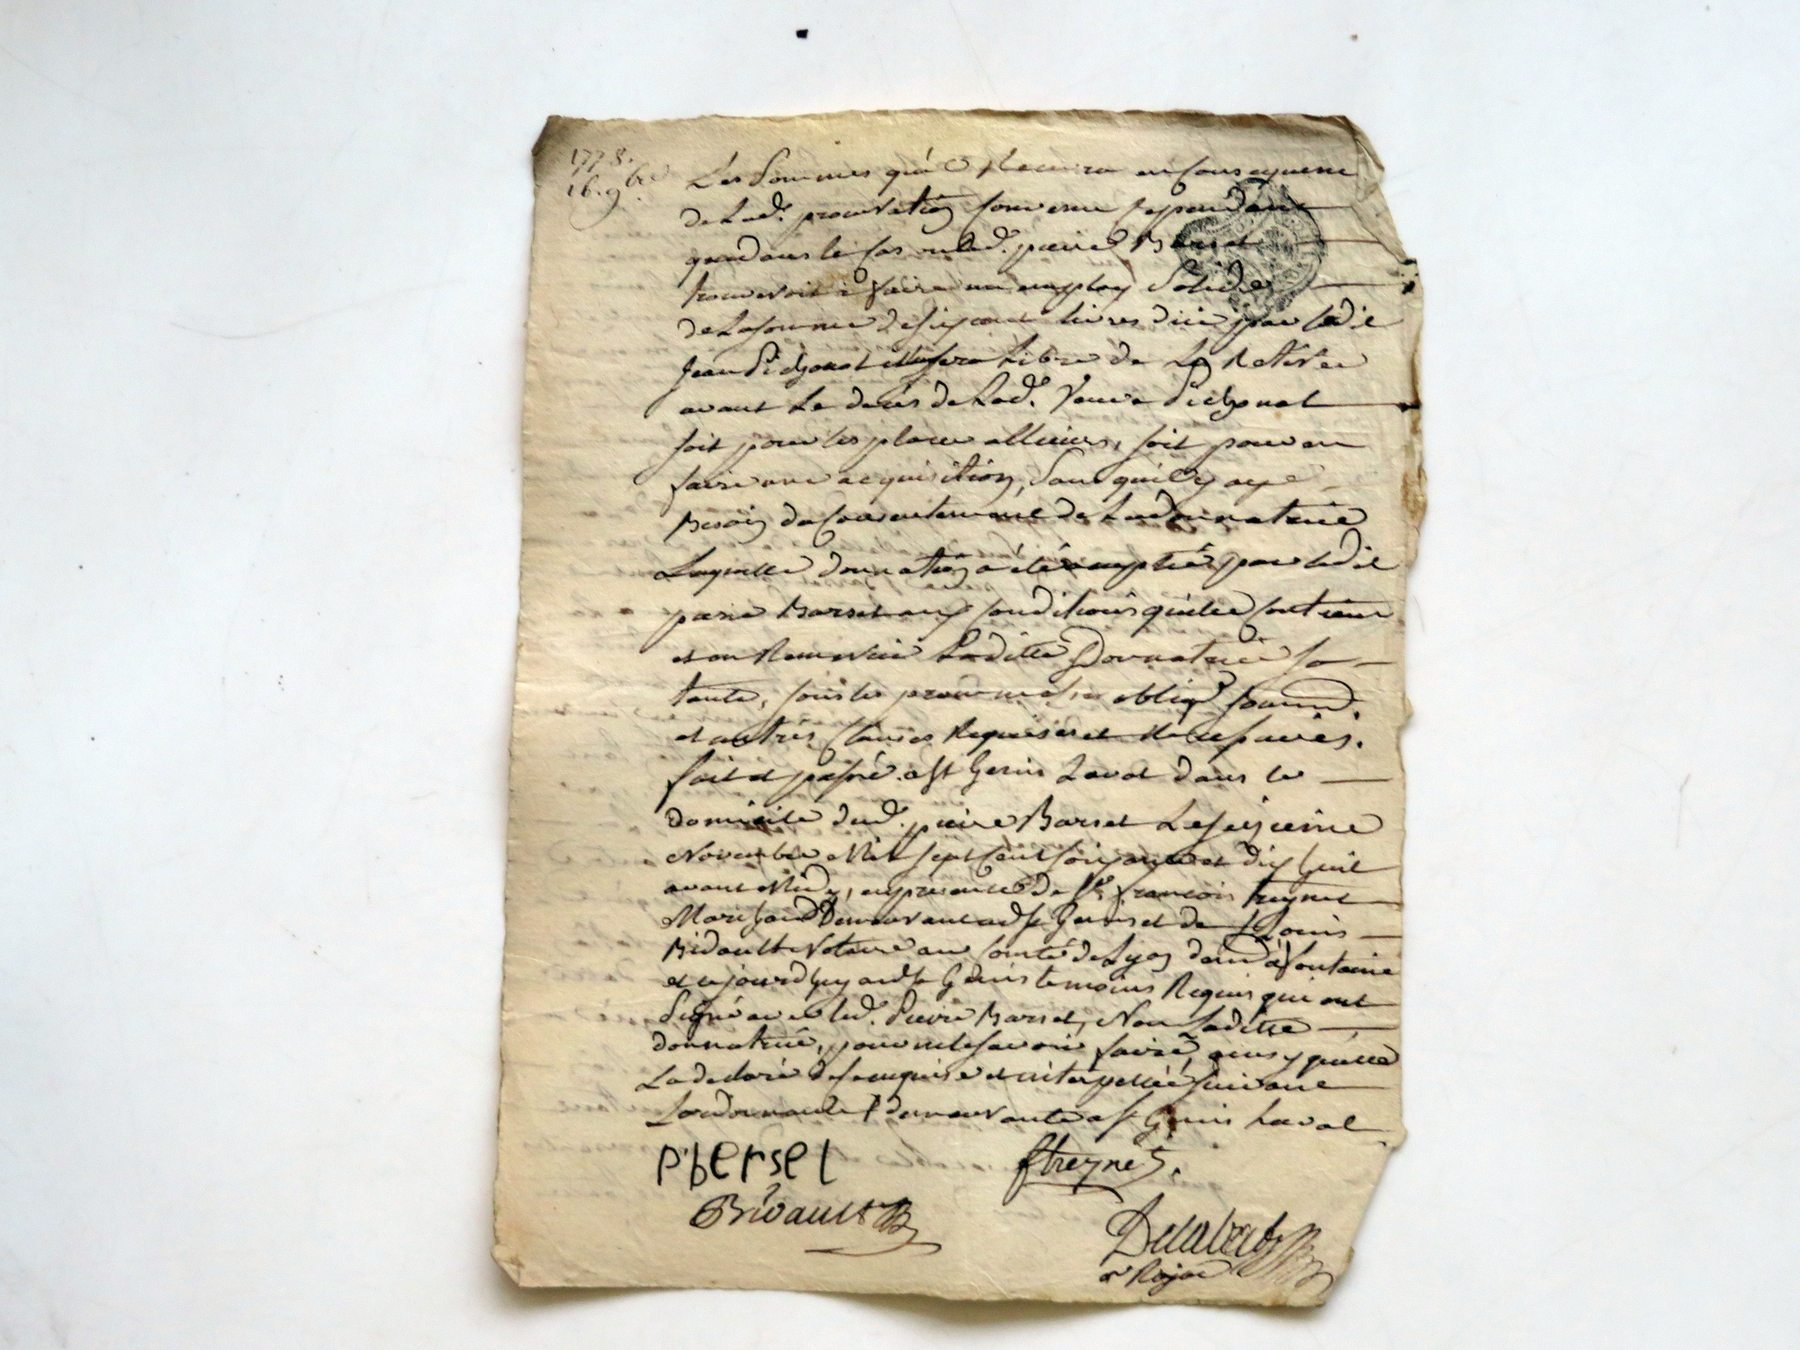 1778.
16. 9bre
Les Sommes qu'il Recevra en Consequence
de Lad. procuration convenu cependant
que dans le cas ou led. pierre Barset
trouveroit a faire un employ Solide
de La somme de six cent livres dici par ledit
Jean Pichonat il sera Libre de La Retirer
avant Le deces de Lad. Veuve Pichonat
soit pour les placer allieurs, soit pour en
faire une acquisition, Sans quil y aye
Besoin du Consentement de La donnatrice
Laquelle donnation a été acceptée par ledit
pierre Barset aux conditions quelle contient
et en Remercie Laditte Donnatrice sa
tante, sous les promesses oblig.
et autres clauses Requises et Necessaires.
fait et passé a St Genis Laval dans le
domicile dud. pierre Barset Le seizieme
Novembre Mil sept cent soixante et dix huit
avant Midy, en presence de Sr. francois freynet
Marchand Demeurant aud St Genis et de Sr Louis
Bidault Notaire au Comté de Lyon dem.t a fontaine
et cejourdhuy aud St Genis temoins Requis qui ont
Signé avec led. Pierre Barset, Non Laditte
donnatrice, pour ne le savoir faire, ainsy quelle
La declaré de ce enquise et interpellée suivant
Lordonnance demeurante a St Genis Laval
P. berset
freynet.
Bidault
no Royal